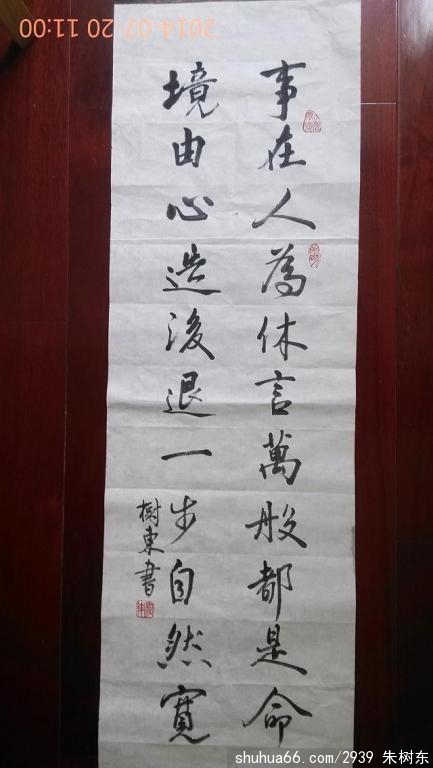 事在人為休言萬般都是命
境由心造後退一步自然寬
樹東書
2014-07-20 11:00
shuhua66.com/2939 朱树东